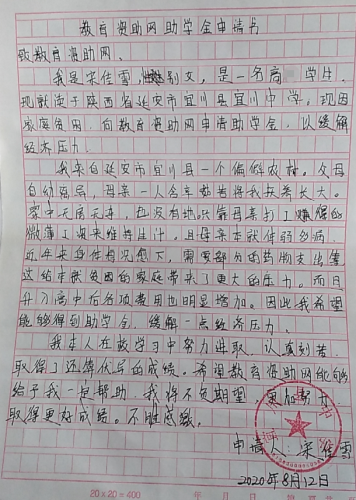 教育资助网助学金申请书
致教育资助网、
我是宋佳雪,性别女,是一名高 学生
现就读于陕西省延安市宜川县宜川中学。现因
家庭贫困,向教育资助网申请助学金,以缓解
经济压力。
我来自延安市宜川县一个偏僻农村。父母
自幼离异,母亲一人含辛茹苦将我扶养长大。
家中无房无车,也没有地。只靠母亲打工赚得的
微薄工资来维持生计。且母亲本就体弱多病,
近年来身体每况愈下,需要 的药物支出给
这给本就贫困的家庭带来了更大的压力。而且
升入高中后各项费用也明显增加。因此我希望
能够得到助学金,缓解一点经济压力。
我本人在教学习中努力进取,认真刻苦
取得了还算优异的成绩。希望教育资助网能够
给予我一定帮助。我将不负期望 更加努力
取得更好成绩。不胜感激。
申请 :宋佳雪
2020年8月12日
20×20=400